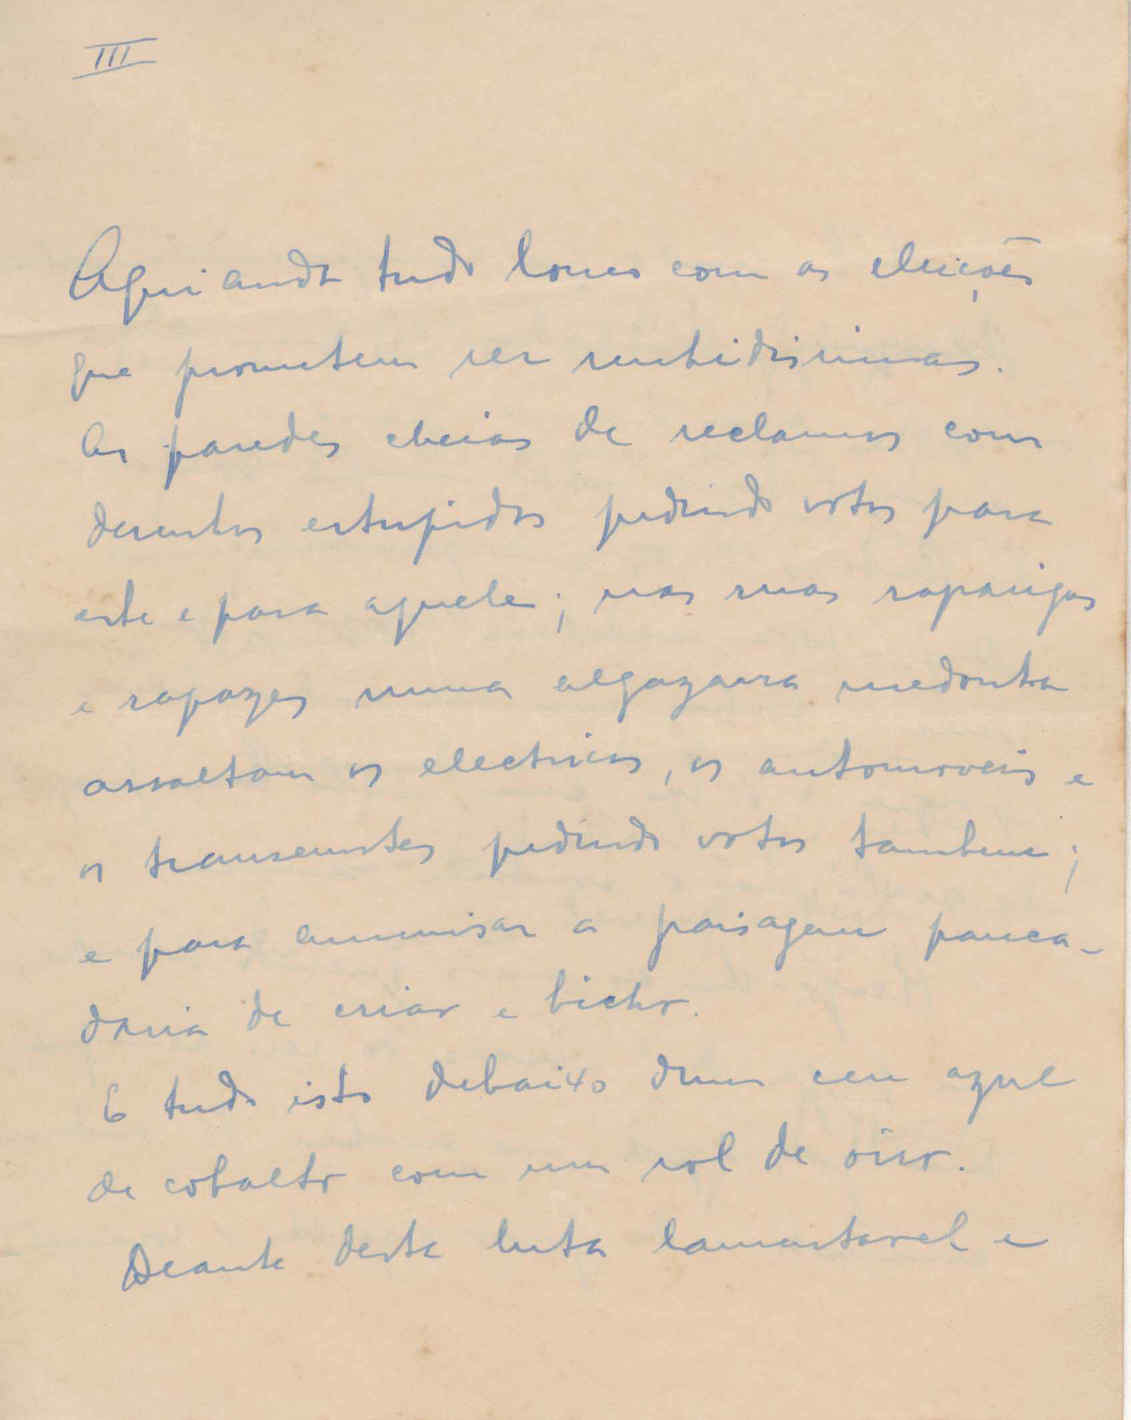 III
Aqui anda tudo louco com as eleições
que prometem ser renhidissimas.
As paredes cheias de reclamos com
desenhos estupidos pedindo votos para
este e para aquele; nas ruas raparigas
e rapazes numa algazarra medonha
assaltam os electricos, os automoveis e
os transeuntes pedindo votos tambem;
e para amenisar a paisagem panca-
daria de criar e bicho.
E tudo isto debaixo dum ceu azul
de cobalto com um sol de oiro.
Deante desta luta lamentavel e